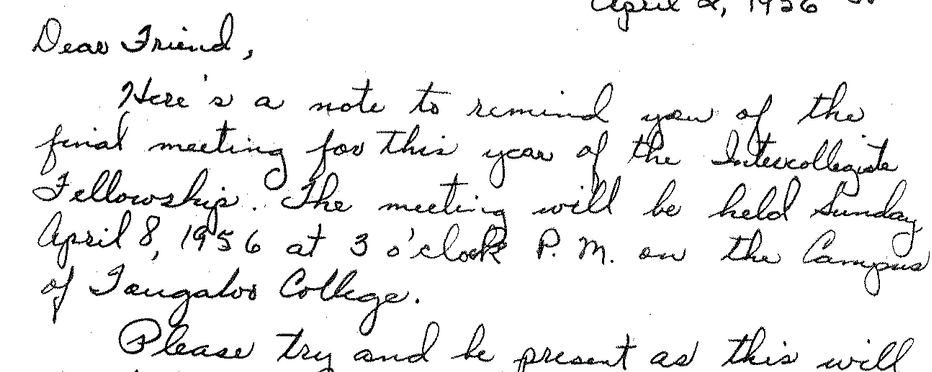 April 2, 1956
Dear Friend,
Here's a note to remind you of the
final meeting for this year of the Intercollegiate
Fellowship. The meeting will be held Sunday,
April 8, 1956 at 3 o'clock P. M. on the Campus
of Tougaloo College.
Please try and be present as this will